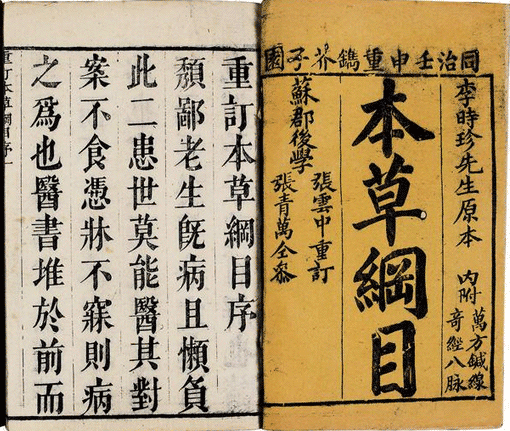 同治壬申重鐫芥子園
李時珍先生原本
內附
萬方鍼線
奇經八脉
本草綱目
蘇郡後學
張雲中重訂
張青萬仝參
重訂本草綱目序
頽鄙老生既病且懶負
此二患世莫能醫其對
案不食憑牀不寐則病
之爲也醫書堆於前而
重訂本草綱目序